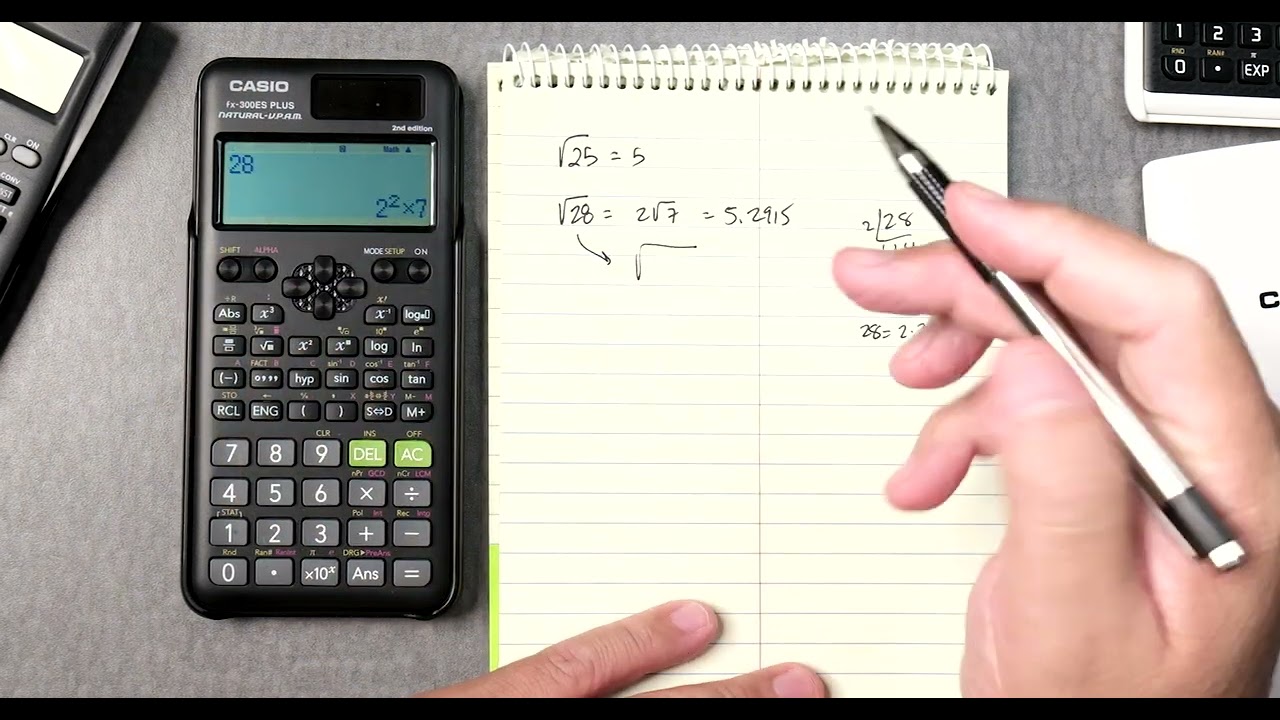 CASIO
fx-300ES PLUS
NATURAL-V.P.A.M.
2nd edition
28
Math ▲
2²×7
SHIFT ALPHA MODE SETUP ON
÷R : x!
Abs x³ x⁻¹ log
√■ x² x■ log ln
A FACT B C sin⁻¹ D cos⁻¹ E tan⁻¹ F
(−) °’” hyp sin cos tan
STO ← X Y M− M
RCL ENG ( ) S⇔D M+
CLR INS OFF
7 8 9 DEL AC
nPr GCD nCr LCM
4 5 6 × ÷
STAT Pol Int Rec Intg
1 2 3 + −
Rnd Ran# RanInt π e DRG▶PreAns
0 • ×10ˣ Ans =
√25 = 5
√28 = 2√7 = 5.2915
√
2 28
28= 2·2
1 2 3
RND RAN# π
0 • EXP
CLR
ON
CONV
C